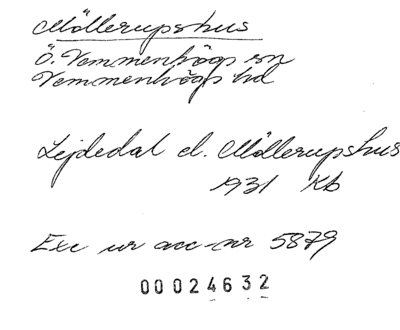 Möllerupshus
Ö. Vemmenhögs sn
Vemmenhögs hd
Lejdedal el. Möllerupshus
1931 Kb
Exc ur acc-nr 5879
00024632